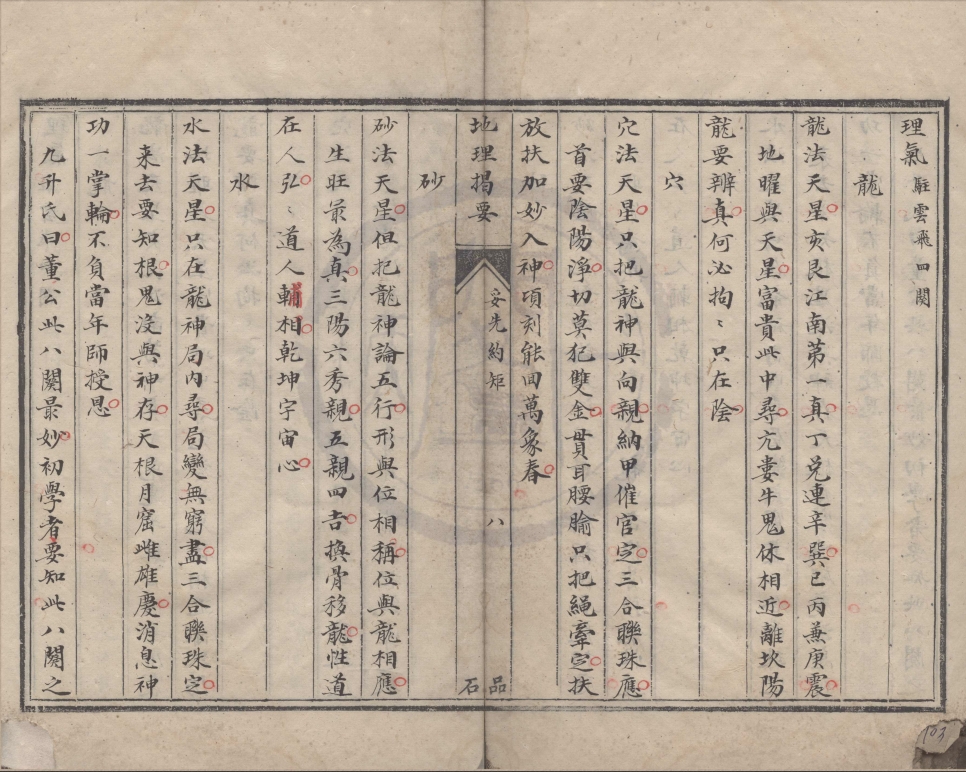 理氣 駐雲飛四闋
龍
龍法天星亥艮江南苐一真丁兌連辛巽巳丙兼庚震
地曜與天星富貴此中尋亢婁牛鬼休相近離坎陽
龍要辨真何必拘〻只在陰
穴
穴法天星只把龍神與向親納甲催官定三合聯珠應
首要陰陽淨切莫犯雙金貫耳腰腧只把繩牽定扶
放扶加妙入神項刻能回萬象春
地理揭要
妥先約矩
八
品石
砂
砂法天星但把龍神論五行形與位相稱位與龍相應
生旺最為真三陽六秀親五親四吉換骨移龍性道
在人弘〻道人輔相乾坤宇宙心
水
水法天星只在龍神局内尋局變無窮盡三合聯珠定
来去要知根鬼没與神存天根月窟雌雄慶消息神
功一掌輪不負當年師授恩
九升氏曰董公此八闋最妙初學者要知此八闋之
103